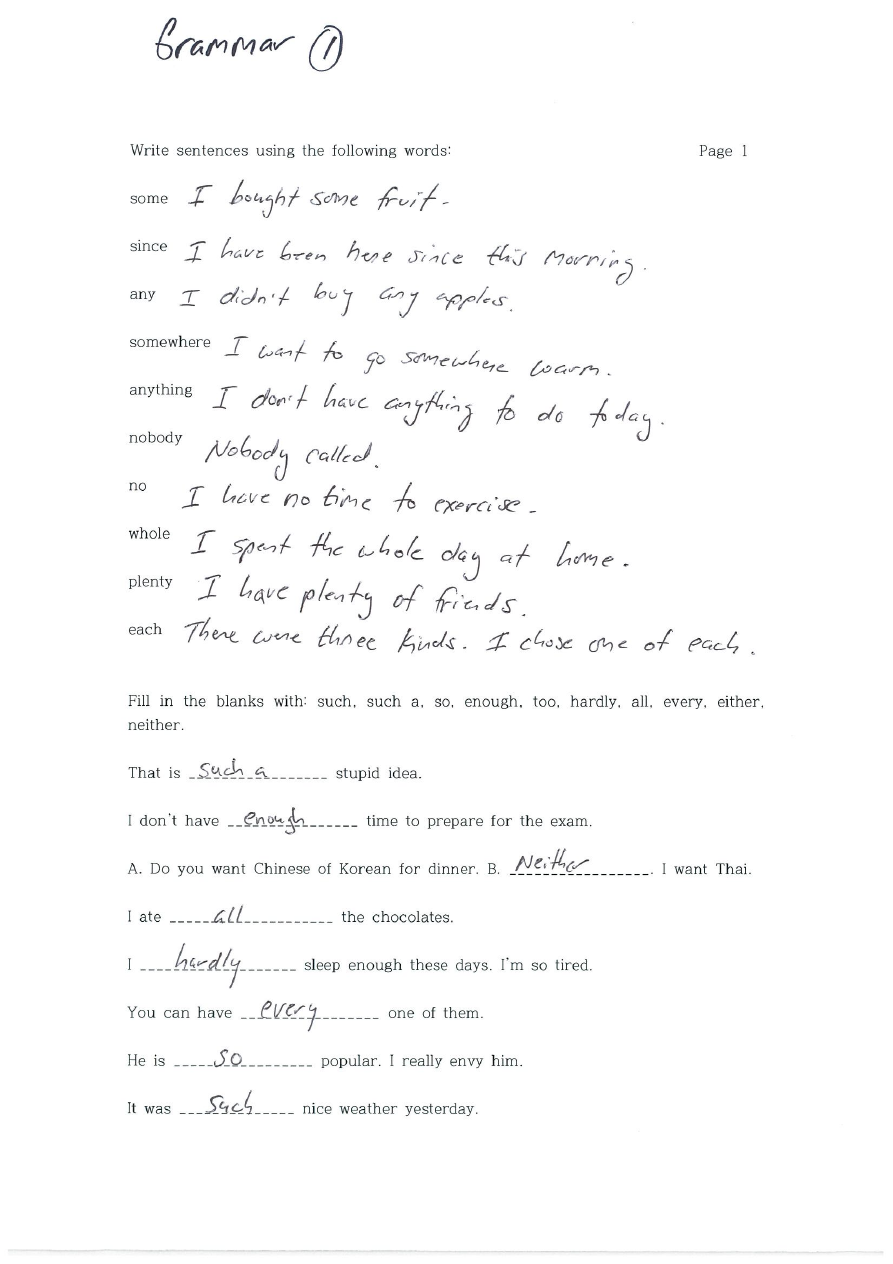 Grammar ①
Write sentences using the following words: Page 1
some I bought some fruit.
since I have been here since this morning.
any I didn't buy any apples.
somewhere I want to go somewhere warm.
anything I don't have anything to do today.
nobody Nobody called.
no I have no time to exercise.
whole I spent the whole day at home.
plenty I have plenty of friends.
each There were three kinds. I chose one of each.
Fill in the blanks with: such, such a, so, enough, too, hardly, all, every, either,
neither.
That is such a stupid idea.
I don't have enough time to prepare for the exam.
A. Do you want Chinese of Korean for dinner. B. Neither. I want Thai.
I ate all the chocolates.
I hardly sleep enough these days. I'm so tired.
You can have every one of them.
He is so popular. I really envy him.
It was such nice weather yesterday.